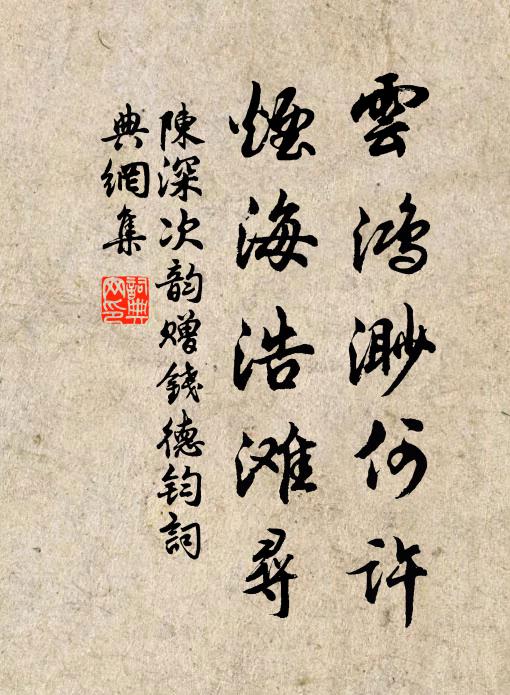 雲鴻渺何許
煙海浩滩尋
陳深次韵贈錢德钧詞
典網集
詞典网印